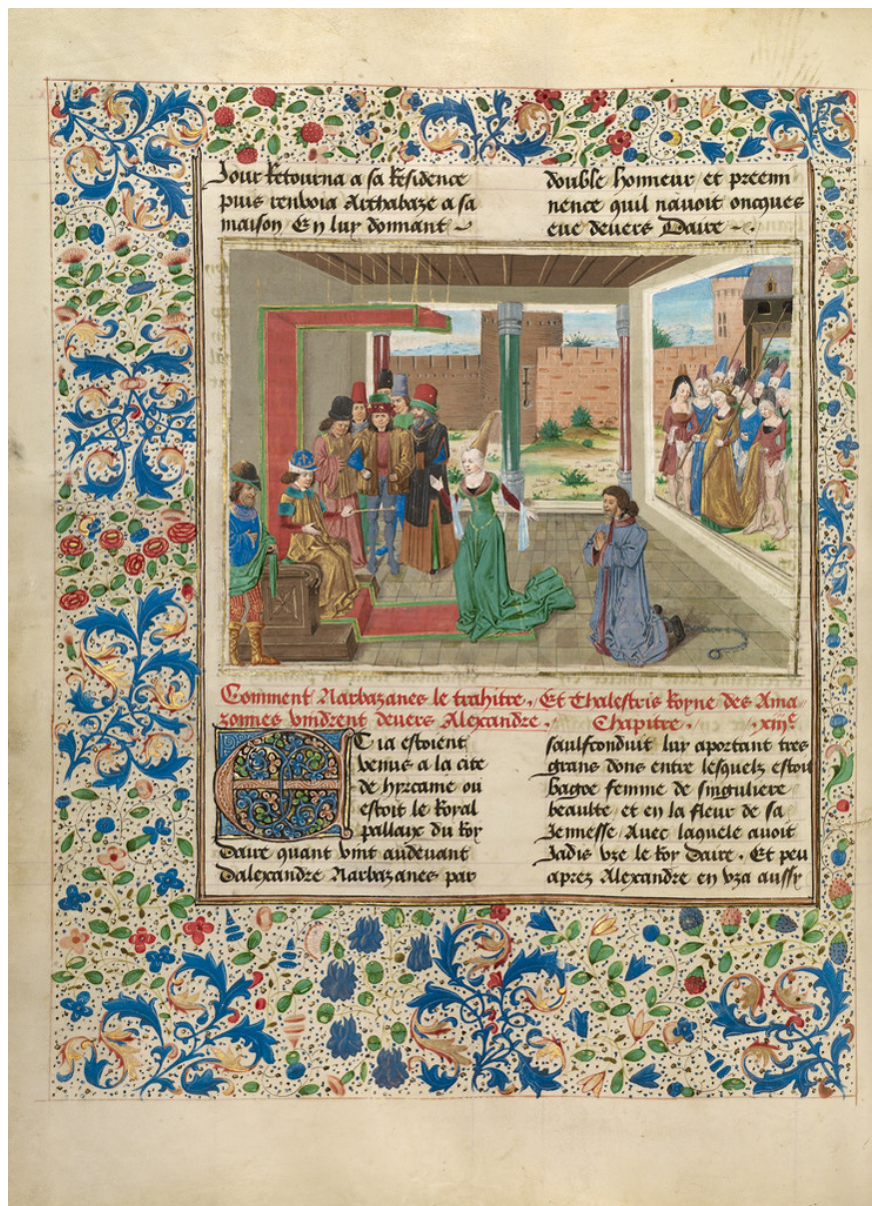 Jour Retourna a sa Residence
puis renvoia Arthabaze a sa
maison En luy donnant
double honneur et preemi
nence quil navoit oncques
eue devers Daire
Comment Narbazanes le trahitre. Et Thalestris Royne des Ama
zonnes vindrent devers Alexandre. Chapitre. xiiije
Et ia estoient
venus a la cite
de hyrcame ou
estoit le Royal
pallaix du Roy
Daire quant vint audevant
Dalexandre Narbazanes par
saulfconduit luy aportant tres
grans dons entre lesquelz estoit
bagoe femme de singuliere
beaulte et en la fleur de sa
Jennesse Avec laquele avoit
Jadis vze le Roy Daire. Et peu
aprez Alexandre en vza aussy